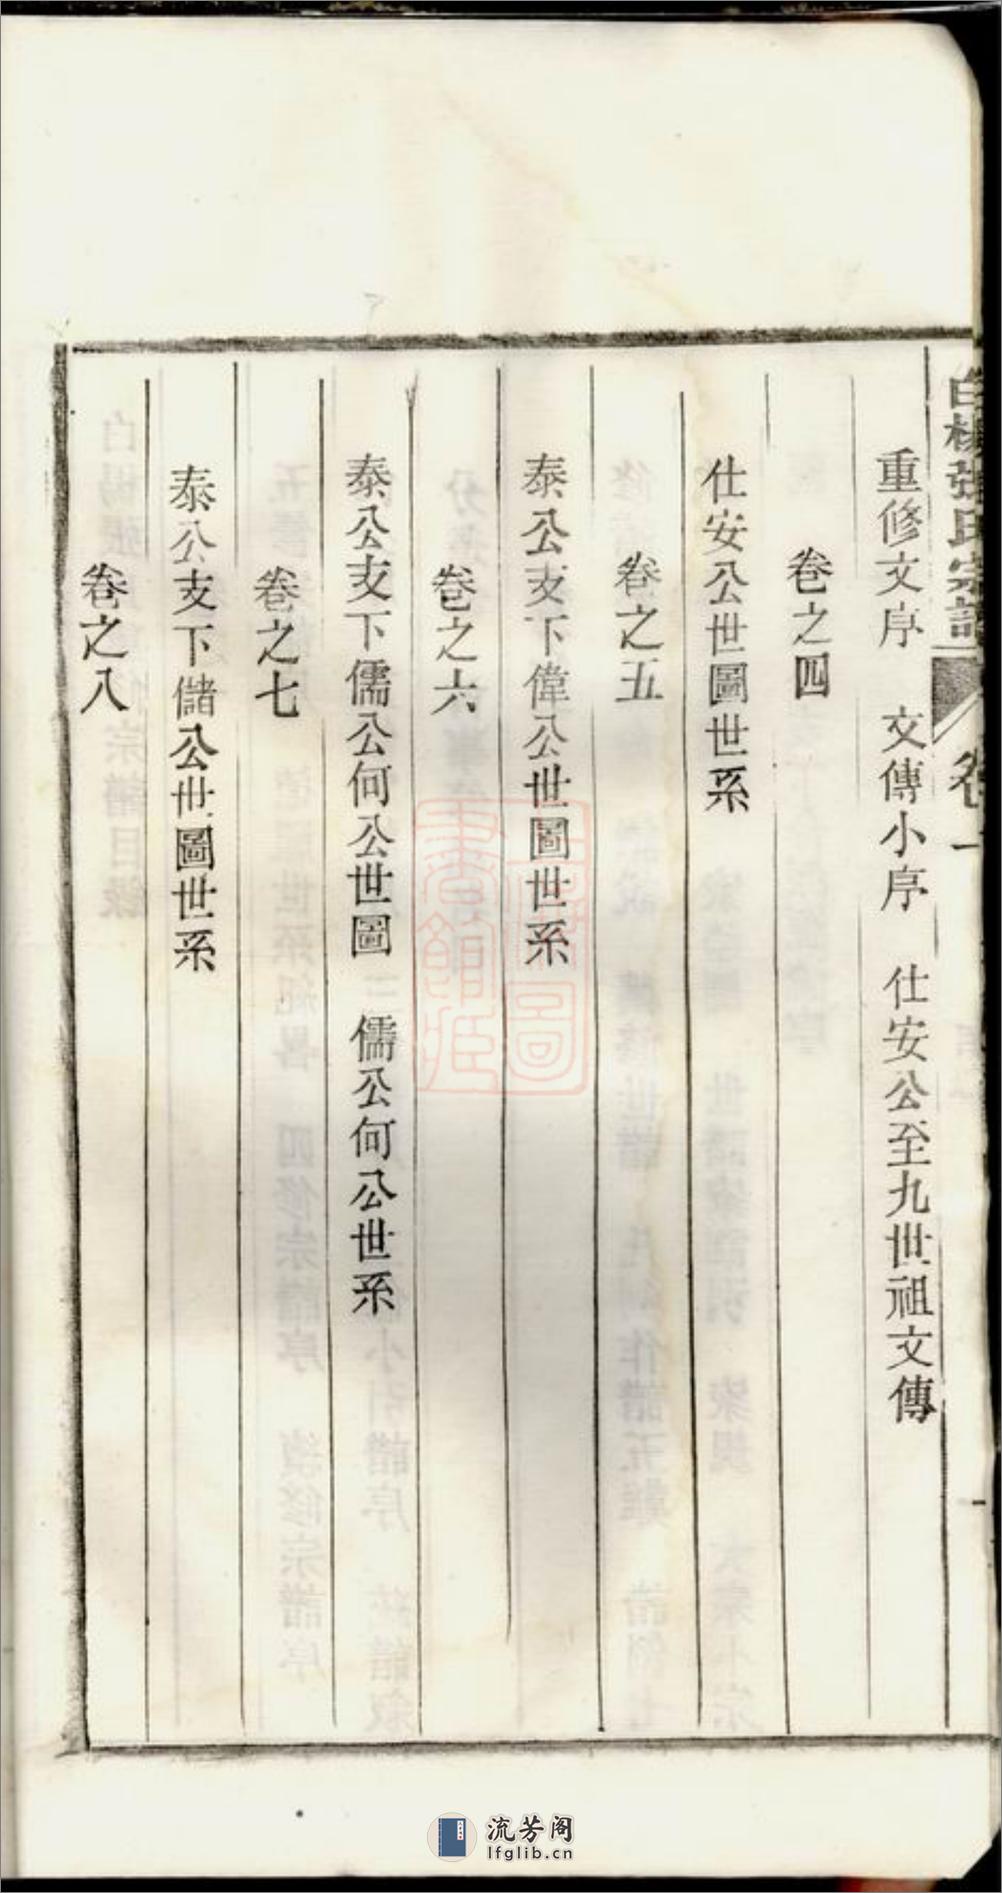 白楊張氏宗譜 卷一
重修文序 文傳小序 仕安公至九世祖文傳
卷之四
仕安公世圖世系
卷之五
泰公支下偉公世圖世系
卷之六
泰公支下儒公何公世圖 儒公何公世系
卷之七
泰公支下儲公世圖世系
卷之八
流芳阁
lfglib.cn